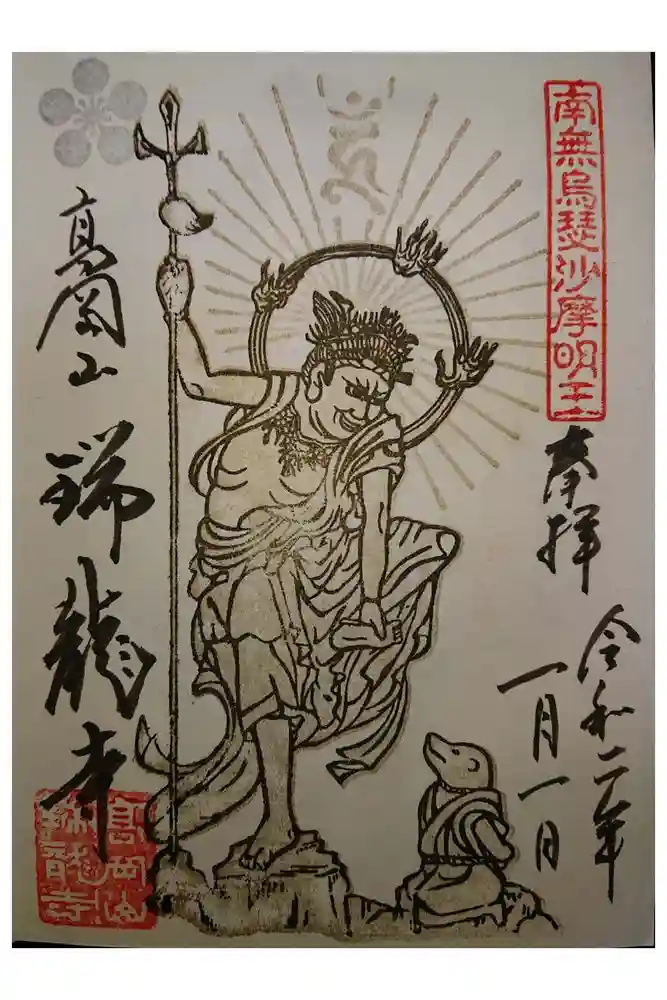 南無烏瑟沙摩明王
奉拝
令和二年
一月一日
高岡山
瑞龍寺
高岡山
瑞龍寺